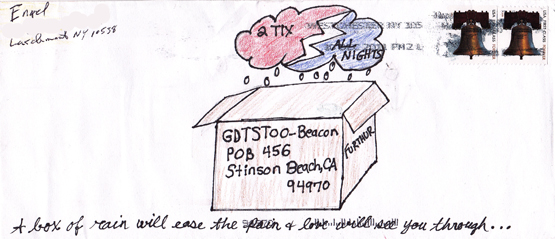 Engel
Larchmont NY 10538
2 TIX
ALL
NIGHTS
WESTCHESTER NY 105
2011 PM 2 L
GDTSTOO-Beacon
POB 456
Stinson Beach, CA
94970
FURTHUR
A box of rain will ease the pain & love will see you through...